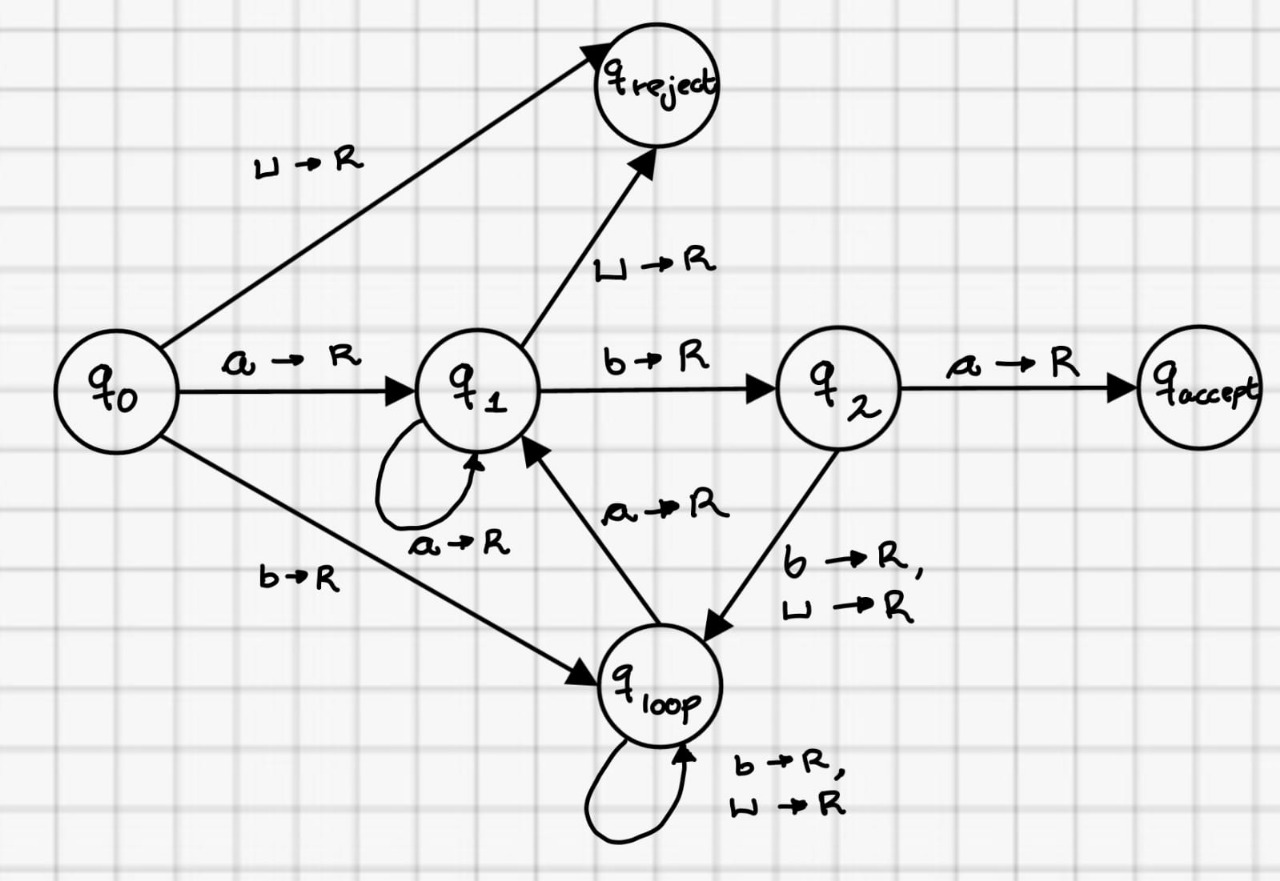 qreject
⊔ → R
⊔ → R
q0
a → R
q1
b → R
q2
a → R
qaccept
a → R
a → R
b → R
b → R,
⊔ → R
qloop
b → R,
⊔ → R